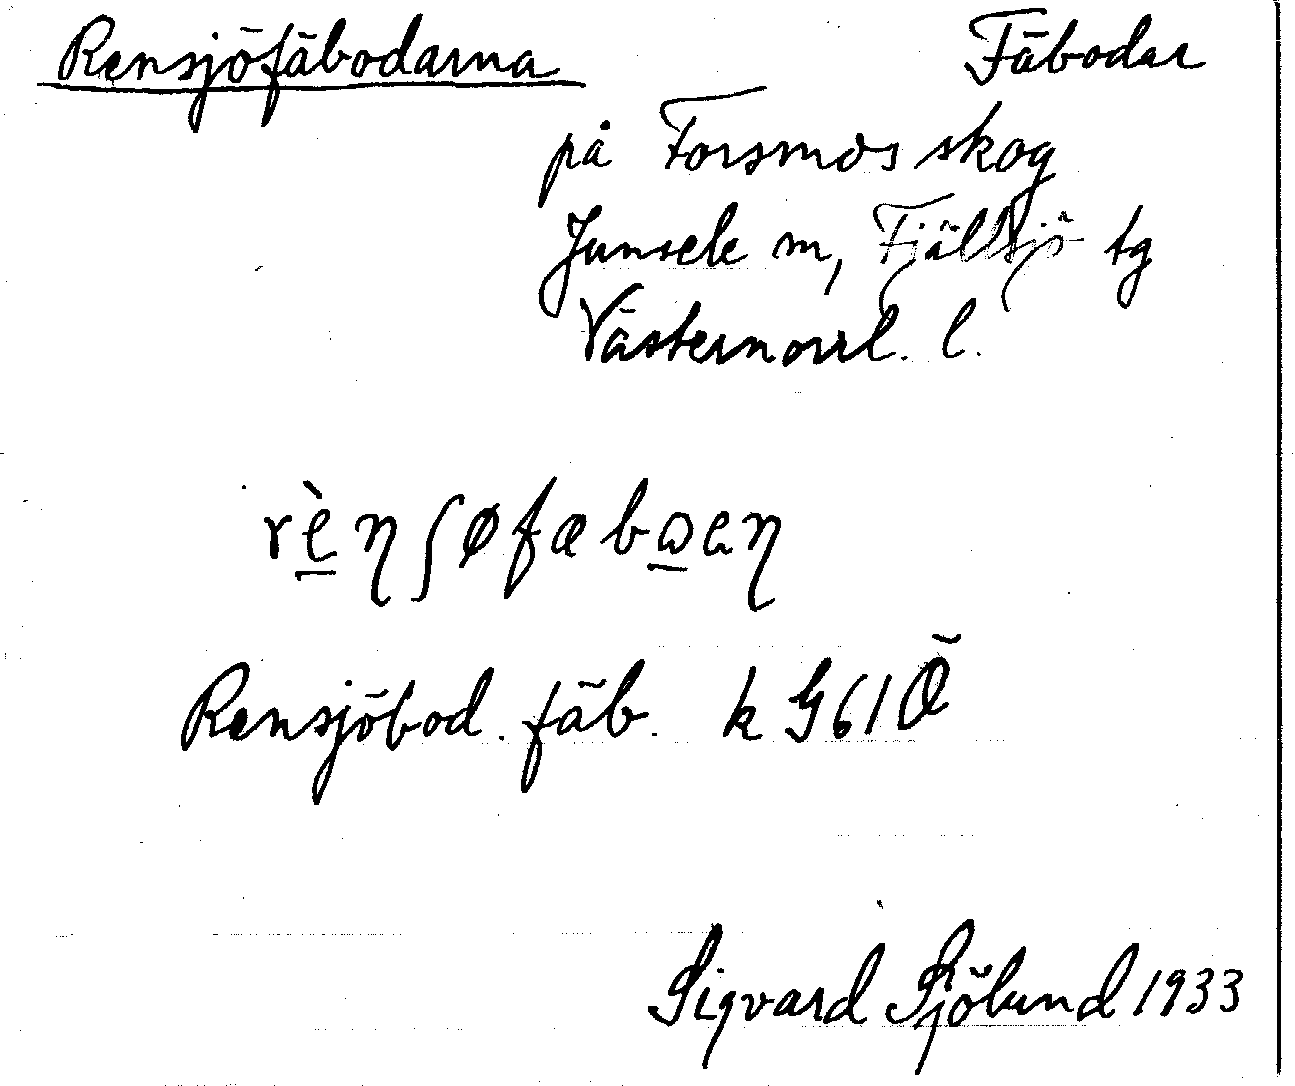 Rensjöfäbodarna Fäbodar
på Forsmos skog
Junsele m, Fjällsjö tg
Västernorrl. l.
rè̠ŋʃøfæbω̠eŋ
Rensjöbod. fäb. k G61Ö
Sigvard Sjölund 1933